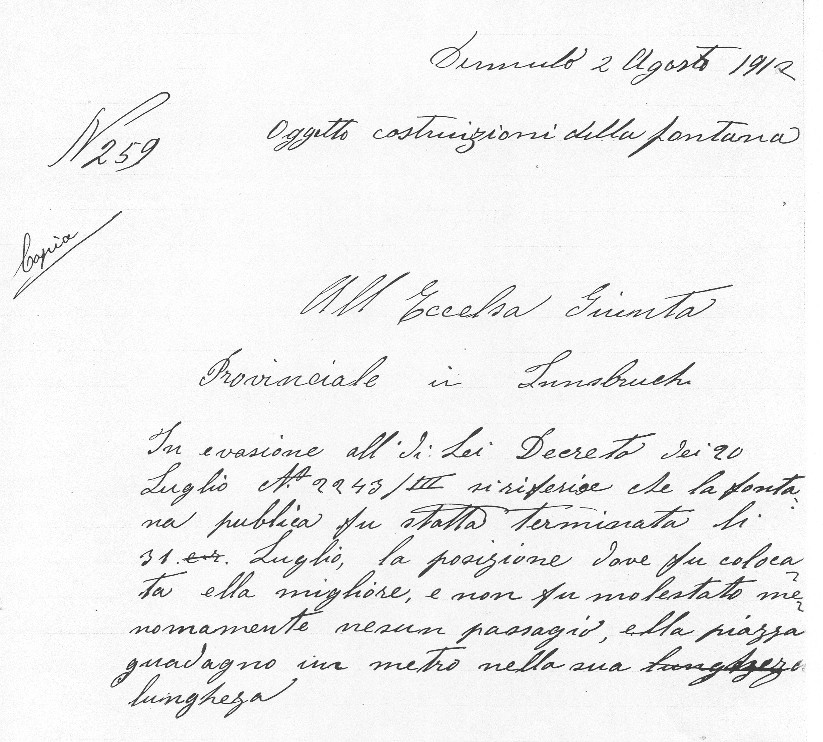 Dermulo 2 Agosto 1912
N 259
Oggetto costruizioni della fontana
Copia
All Eccelsa Giunta
Provinciale in Innsbruch
In evasione all' di: Lei Decreto dei 20
Luglio Nº 2243/III si riferisce che la fonta-
na publica fu statta terminata li
31. cor. Luglio, la posizione dove fu coloca-
ta ella migliore, e non fu molestato me-
nomamente nesun passagio, ella piazza
guadagno un metro nella sua lunghezza
lungheza